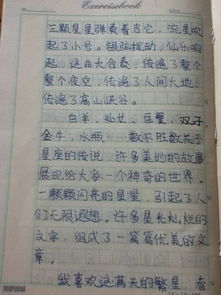 Exercisebook
三颗星星弹奏着吉它,流星吹
起了小号。银弦拨动,仙乐响
起,这曲大合奏,传遍了整个
整个夜空,传遍了人间大地,
传遍了高山峡谷。
白羊、仙女、巨蟹、双子
金牛、水瓶,一数不胜数关于
星座的传说,许多美妙的故事
展现给大家一个神奇的世界。
一颗颗闪亮的星星,引起了人
们无限遐想。许多星长灿烂的
文字,组成了一篇篇优美的文
章。
我喜欢这满天的繁星,